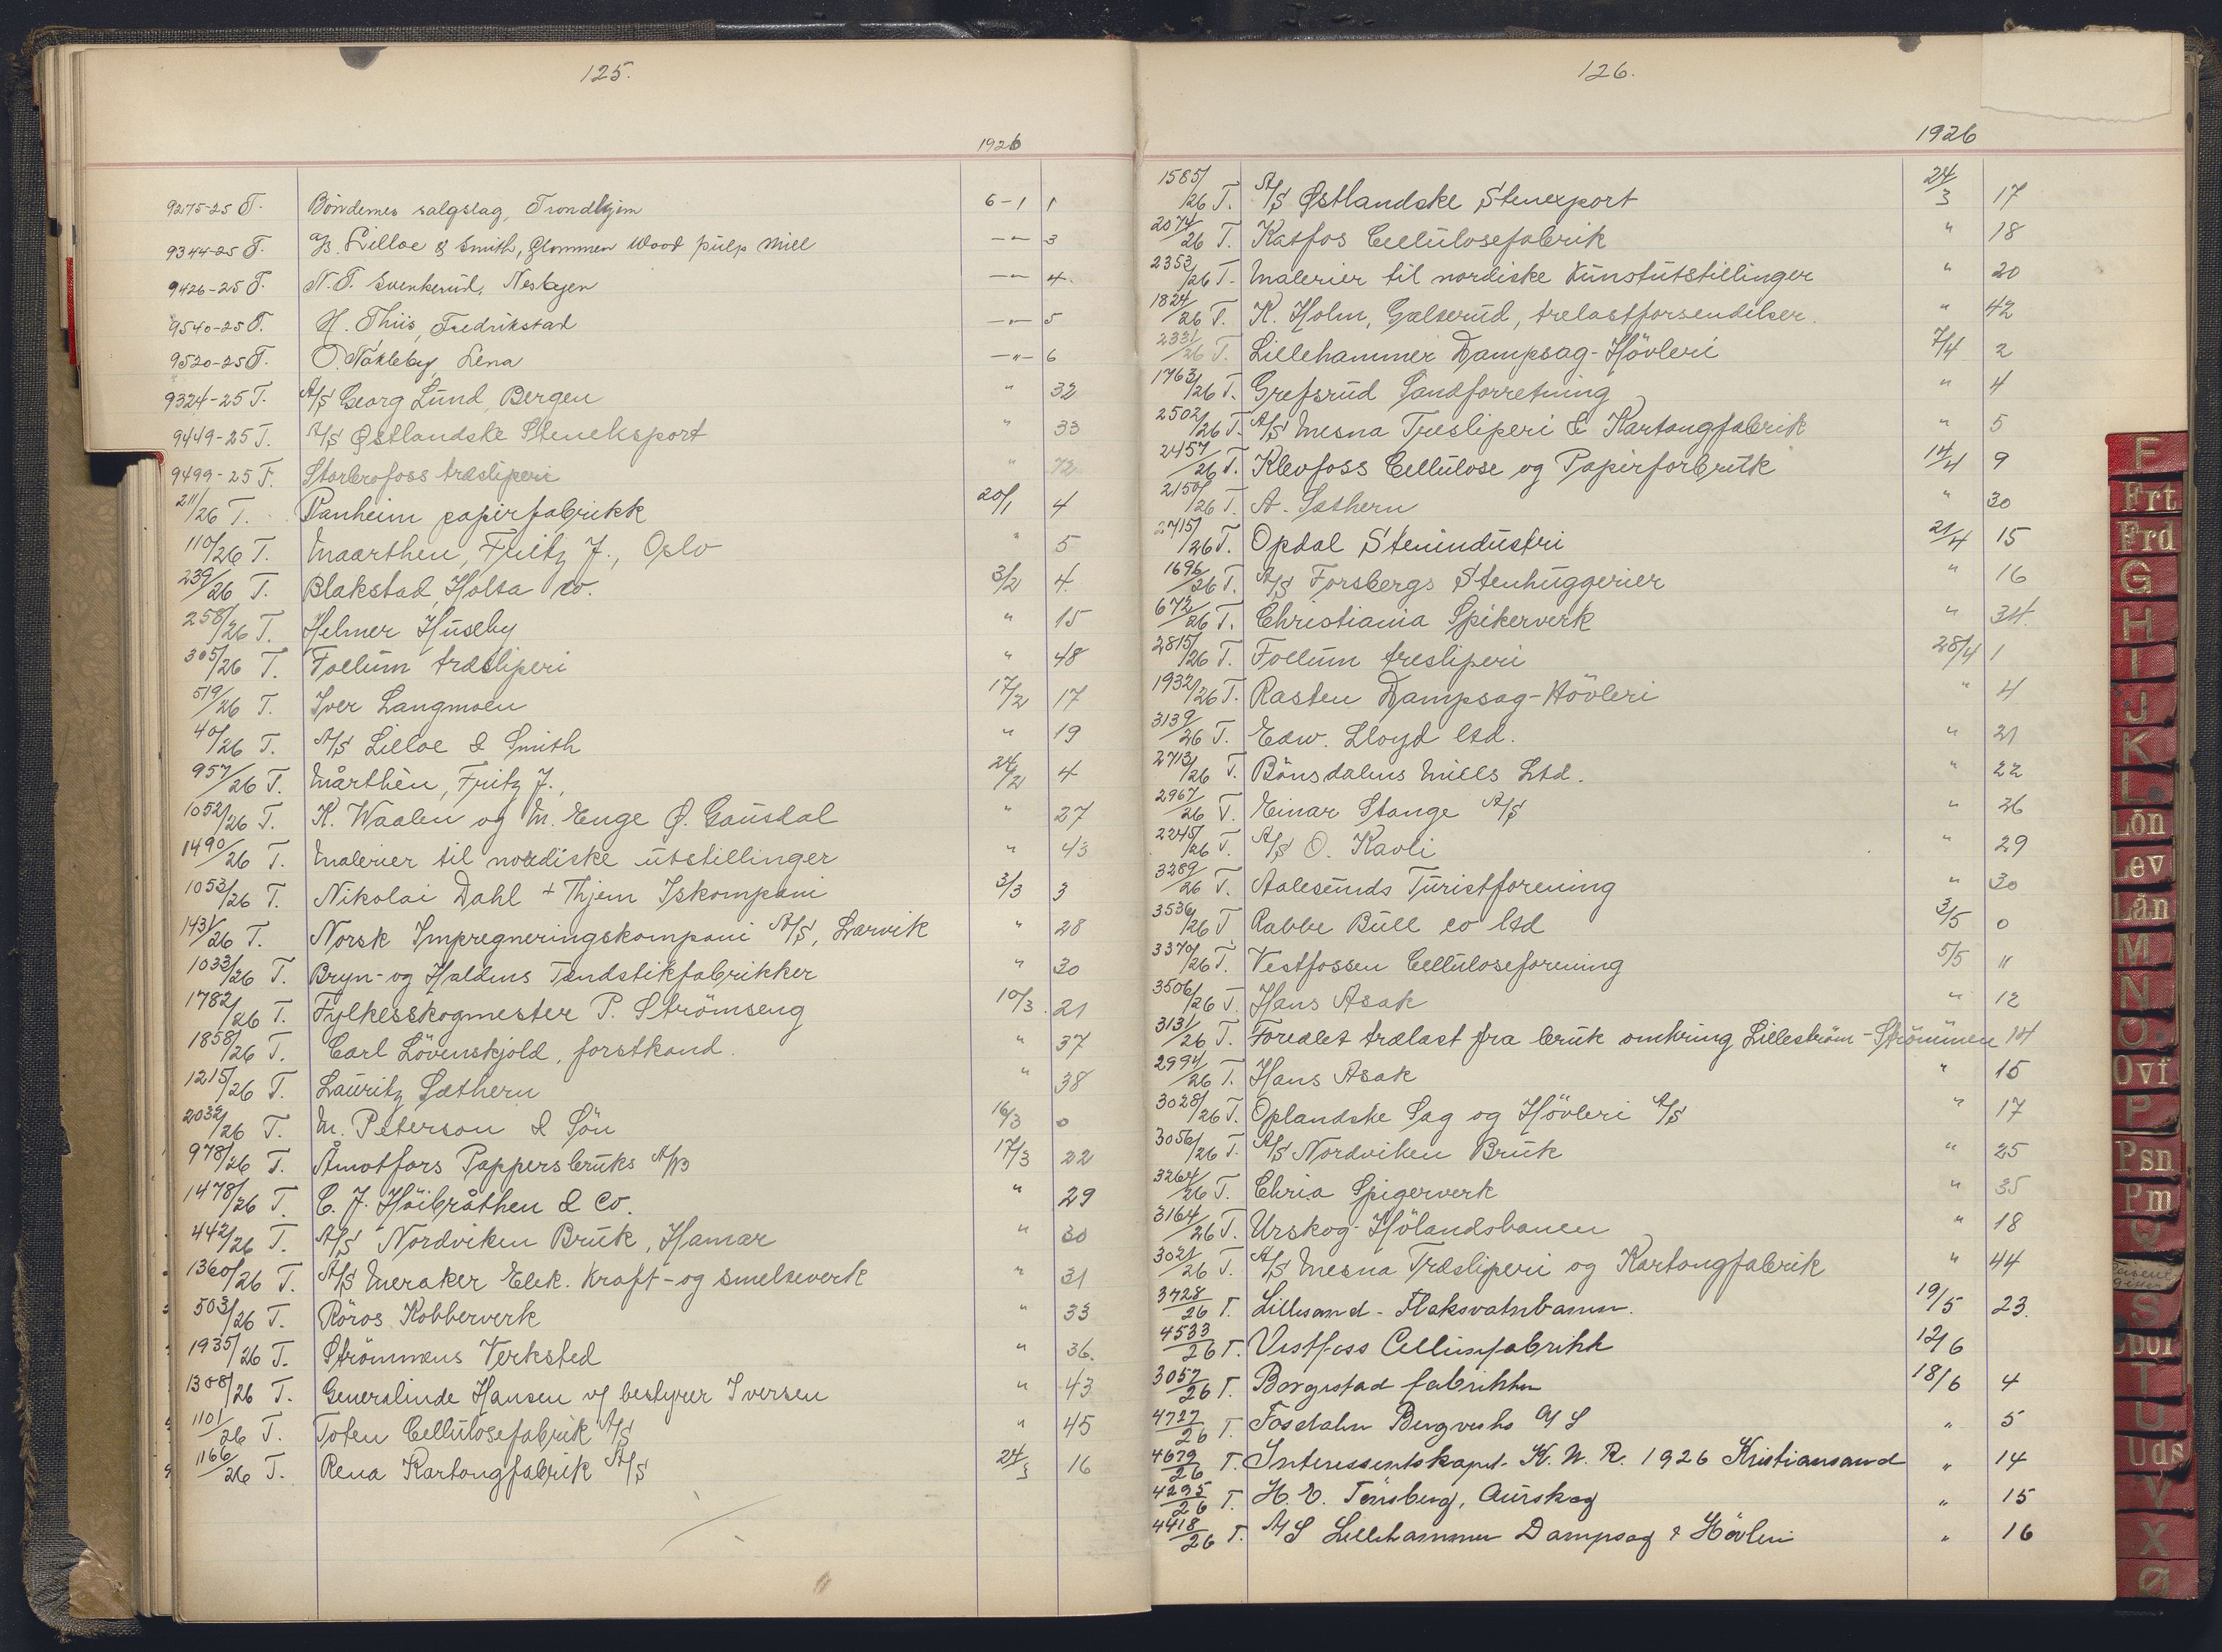 125.
1926
9275-25 T. Böndernes salgslag, Trondhjem 6-1 1
9344-25 T. A/S Lilloe & Smith, Glommen Wood pulp Mill —"— 3
9426-25 T. N. T. Svenkerud, Nesbyen —"— 4
9540-25 T. H. Thiis, Fredrikstad —"— 5
9520-25 T. O. Nökleby, Lena —"— 6
9324-25 T. A/S Georg Lund, Bergen " 32
9449-25 T. A/S Østlandske Steneksport " 33
9499-25 T. Storbrofoss træsliperi " 72
211/26 T. Ranheim papirfabrikk 20/1 4
110/26 T. Maarthen, Fritz J., Oslo " 5
239/26 T. Blakstad, Holta co. 3/2 4
258/26 T. Helmer Huseby " 15
305/26 T. Follum træsliperi " 48
519/26 T. Iver Langmoen 17/2 17
40/26 T. A/S Lilloe & Smith " 19
957/26 T. Mårthèn, Fritz J., 24/2 4
1052/26 T. K. Waalen og M. Enge Ø. Gausdal " 27
1490/26 T. Malerier til nordiske utstillinger " 43
1053/26 T. Nikolai Dahl + Thjem Iskompani 3/3 3
1431/26 T. Norsk Impregneringskompani A/S, Larvik " 28
1033/26 T. Bryn- og Haldens Tændstikfabrikker " 30
1782/26 T. Fylkesskogmester P. Strömseng 10/3 21
1858/26 T. Carl Lövenskjold, forstkand. " 37
1215/26 T. Lauritz Sæthern " 38
2032/26 T. M. Peterson & Sön 16/3 0
978/26 T. Åmotfors Pappersbruks A/B 17/3 22
1478/26 T. C. J. Höibråthen & Co. " 29
442/26 T. A/S Nordviken Bruk, Hamar " 30
1360/26 T. A/S Meraker Elek. Kraft- og smelteverk " 31
503/26 T. Röros Kobberverk " 33
1935/26 T. Strömmens Verksted " 36.
1308/26 T. Generalinde Hansen og bestyrer Iversen " 43
1101/26 T. Toten Cellulosefabrik A/S " 45
1166/26 T. Rena Kartongfabrik A/S 24/3 16
126.
1926
1585/26 T. A/S Østlandske Stenexport 24/3 17
2074/26 T. Katfos Cellulosefabrik " 18
2353/26 T. Malerier til nordiske Kunstutstillinger " 20
1824/26 T. K. Holm, Galterud, trelastforsendelser. " 42
2331/26 T. Lillehammer Dampsag-Hövleri 7/4 2
1763/26 T. Grefsrud Sandforretning " 4
2502/26 T. A/S Mesna Tresliperi & Kartongfabrik " 5
2457/26 T. Klevfoss Cellulose og Papirforbruk 14/4 9
2150/26 T. A. Sæthern " 30
2715/26 T. Opdal Stenindustri 21/4 15
1696/26 T. A/S Forsbergs Stenhuggerier " 16
672/26 T. Christiania Spikerverk " 34.
2815/26 T. Follum tresliperi 28/4 1
1932/26 T. Rasten Dampsag-Hövleri " 4
3139/26 T. Edw. Lloyd ltd. " 21
2713/26 T. Bönsdalens Mills Ltd. " 22
2967/26 T. Einar Stange A/S " 26
2245/26 T. A/S O. Kavli " 29
3289/26 T. Aalesunds Turistforening " 30
3536/26 T Rabbe Bull co ltd 3/5 0
3370/26 T. Vestfossen Celluloseforening 5/5 11
3506/26 T. Hans Asak " 12
3131/26 T. Forædlet trælast fra bruk omkring Lilleström-Strömmen 14
2994/26 T. Hans Asak " 15
3028/26 T. Oplandske Sag og Hövleri A/S " 17
3056/26 T. A/S Nordviken Bruk " 25
3264/26 T. Chria Spigerverk " 35
3164/26 T. Urskog-Hölandsbanen " 18
3021/26 T. A/S Mesna Træsliperi og Kartongfabrik " 44
3728/26 T. Lillesand-Flaksvatnbanen. 19/5 23.
4533/26 T. Vestfoss Cellulosefabrikk 12/6
3057/26 T. Borgestad fabrikker 18/6 4
4727/26 T. Fosdalen Bergverks A/S " 5
4679/26 T. Interessentskapet K. N. R. 1926 Kristiansand " 14
4295/26 T. H. E. Tönsberg, Aurskog " 15
4418/26 T. A/S Lillehammer Dampsag & Hövleri " 16
F
Frt
Frd
G
H
I
J
K
L
Lön
Lev
Lån
M
N
O
Ovf
P
Psn
Pm
Q
S
Spor
T
U
Uds
V
X
Ø